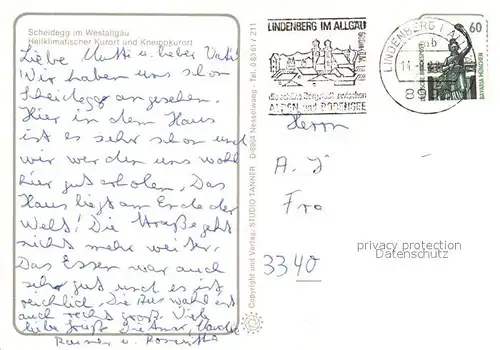 Scheidegg im Westallgäu
Heilklimatischer Kurort und Kneippkurort
Liebe Mutti u. lieber Vati!
Wir haben uns schon
Scheidegg angesehen.
Hier in dem Haus
ist es sehr schön und
wir werden uns wohl
hier gut erholen. Das
Haus liegt am Ende der
Welt! Die Straße geht
nicht mehr weiter.
Das Essen war auch
sehr gut und es ist
reichlich. Die Auswahl ist
auch recht groß. Viele
liebe Grüße Dietmar,
Rainer u.
Copyright und Verlag: STUDIO TANNER D-8964 Nesselwang - Tel. 0 83 61 / 211
LINDENBERG IM ALLGÄU
die schöne Bergstadt zwischen
ALPEN und BODENSEE
LINDENBERG I ALLGÄU
mb
60
BAVARIA MÜNCHEN
Herrn
A. J
Fro
3340
privacy protection
Datenschutz